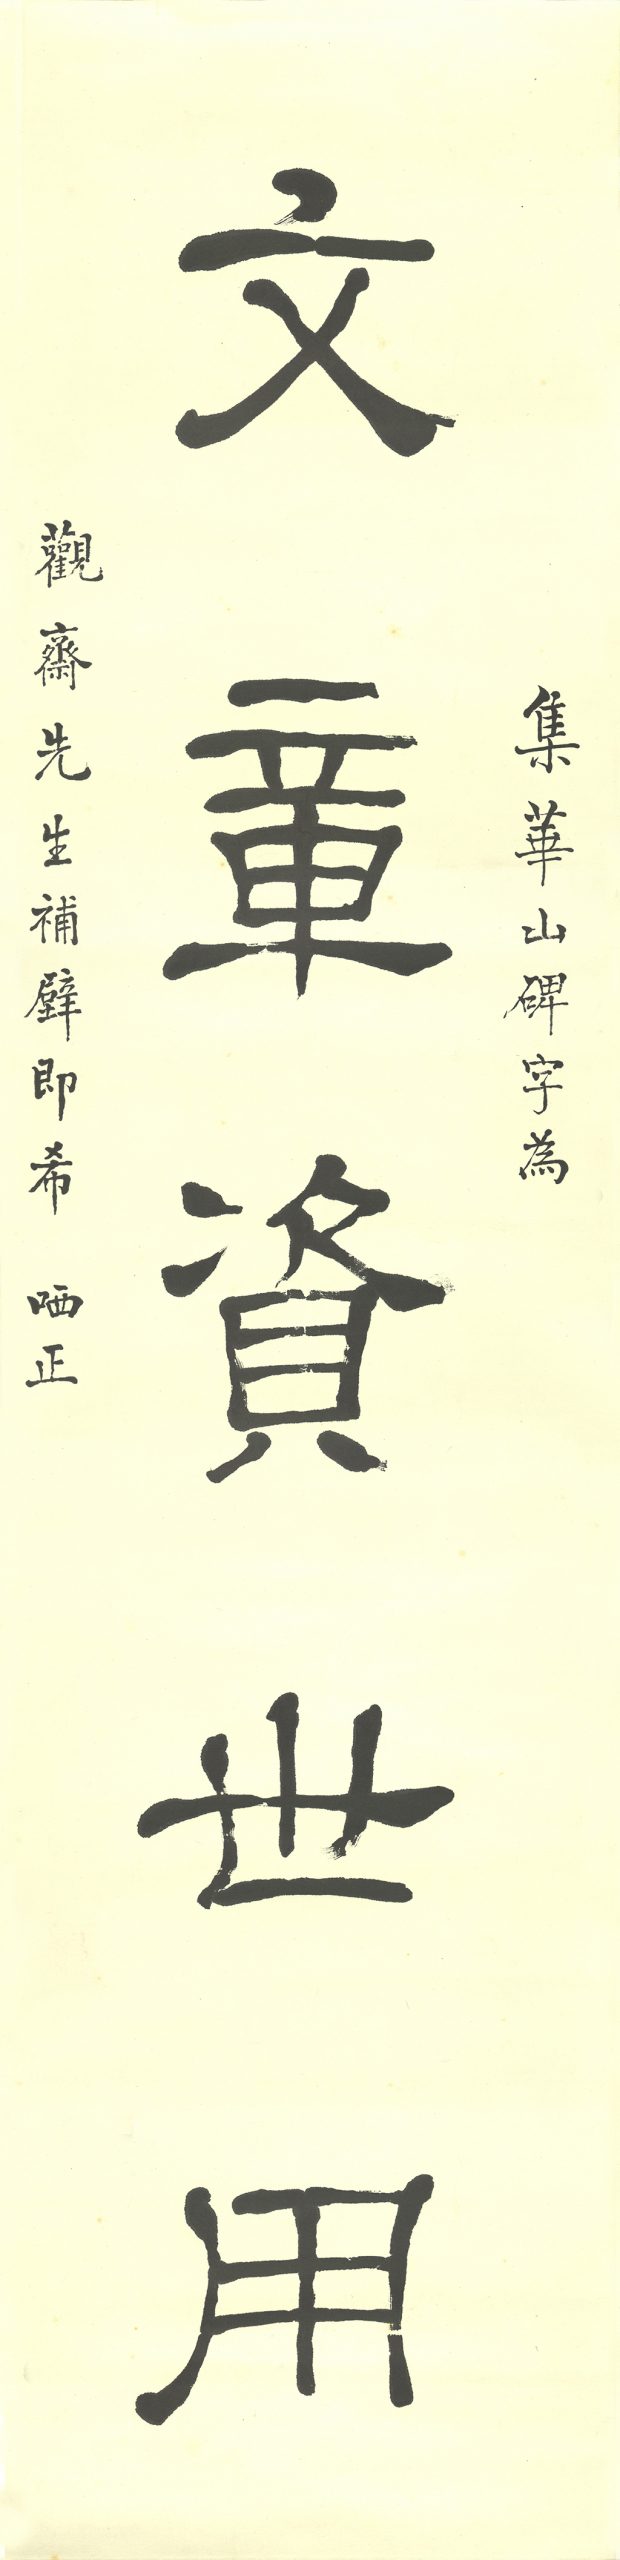 集華山碑字為
文章資世用
觀齋先生補壁即希 哂正